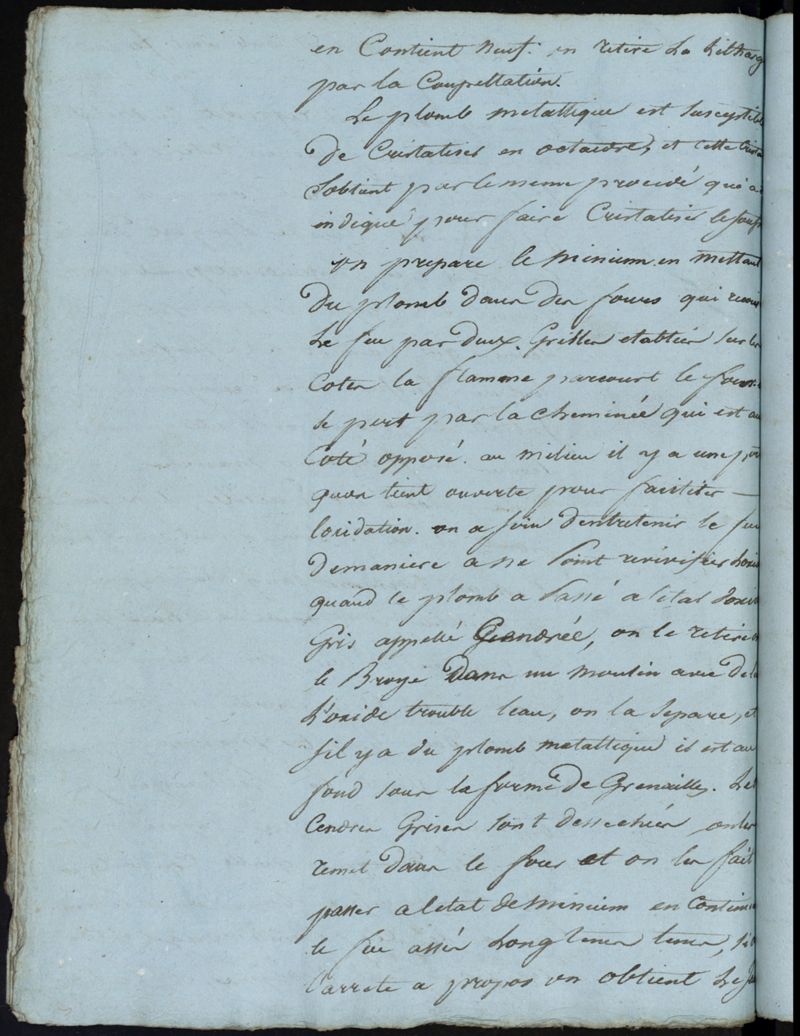 en Contient neuf. on retire la Litharg
par la Coupellation.
Le plomb metallique est susceptible
de Cristaliser en octaedre, et cette
s'obtient par le meme procédé qui a
indiqué pour faire Cristaliser le souf
on prepare le minium en mettant
du plomb dans des fours qui
le feu par deux Grilles etablies sur les
Cotés la flamme parcourt le four
se pert par la cheminée qui est au
Coté opposé. au milieu il y a une por
quon tient ouverte pour faciliter —
loxidation. on a soin dentretenir le feu
demaniere a ne point revivifier loxid
quand le plomb a passé a letat doxid
Gris appellé Cendrée, on le retire
le Broye dans un moulin avec de l
L'oxide trouble leau, on la separe, et
sil y a du plomb metallique il est au
fond sous la forme de Grenailles. Les
Cendres Grises sont dessechées on les
remet dans le four et on les fait
passer a letat de minium en Continu
le feu assés longtems,
l'arrete a propos on obtient le